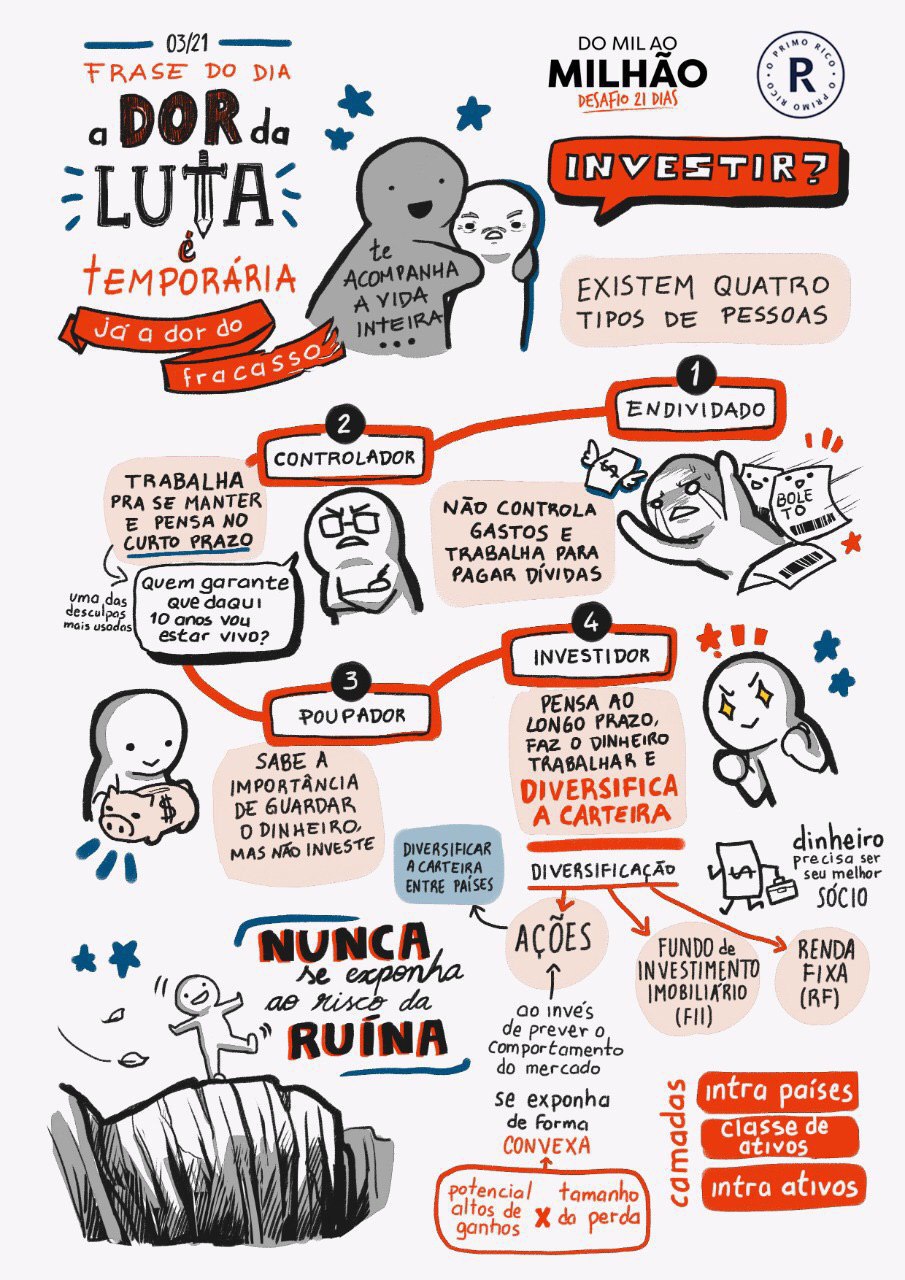 03/21
FRASE DO DIA
a DOR da
LUTA
é
TEMPORÁRIA
já a dor do
fracasso
te
ACOMPANHA
A VIDA
INTEIRA
...
DO MIL AO
MILHÃO
DESAFIO 21 DIAS
O PRIMO RICO • O PRIMO RICO •
R
INVESTIR?
EXISTEM QUATRO
TIPOS DE PESSOAS
1
ENDIVIDADO
NÃO CONTROLA
GASTOS E
TRABALHA PARA
PAGAR DÍVIDAS
$
BOLE
TO
2
CONTROLADOR
TRABALHA
PRA SE MANTER
E PENSA NO
CURTO PRAZO
uma das
desculpas
mais usadas
Quem garante
que daqui
10 anos vou
estar vivo?
3
POUPADOR
SABE A
IMPORTÂNCIA
DE GUARDAR
O DINHEIRO,
MAS NÃO INVESTE
$
4
INVESTIDOR
PENSA AO
LONGO PRAZO,
FAZ O DINHEIRO
TRABALHAR E
DIVERSIFICA
A CARTEIRA
DIVERSIFICAÇÃO
$
dinheiro
precisa ser
seu melhor
SÓCIO
DIVERSIFICAR
A CARTEIRA
ENTRE PAÍSES
AÇÕES
FUNDO de
INVESTIMENTO
IMOBILIÁRIO
(FII)
RENDA
FIXA
(RF)
ao invés
de prever o
comportamento
do mercado
se exponha
de forma
CONVEXA
potencial
altos de
ganhos
X
tamanho
da perda
camadas
intra países
classe de
ativos
intra ativos
NUNCA
se exponha
ao risco da
RUÍNA